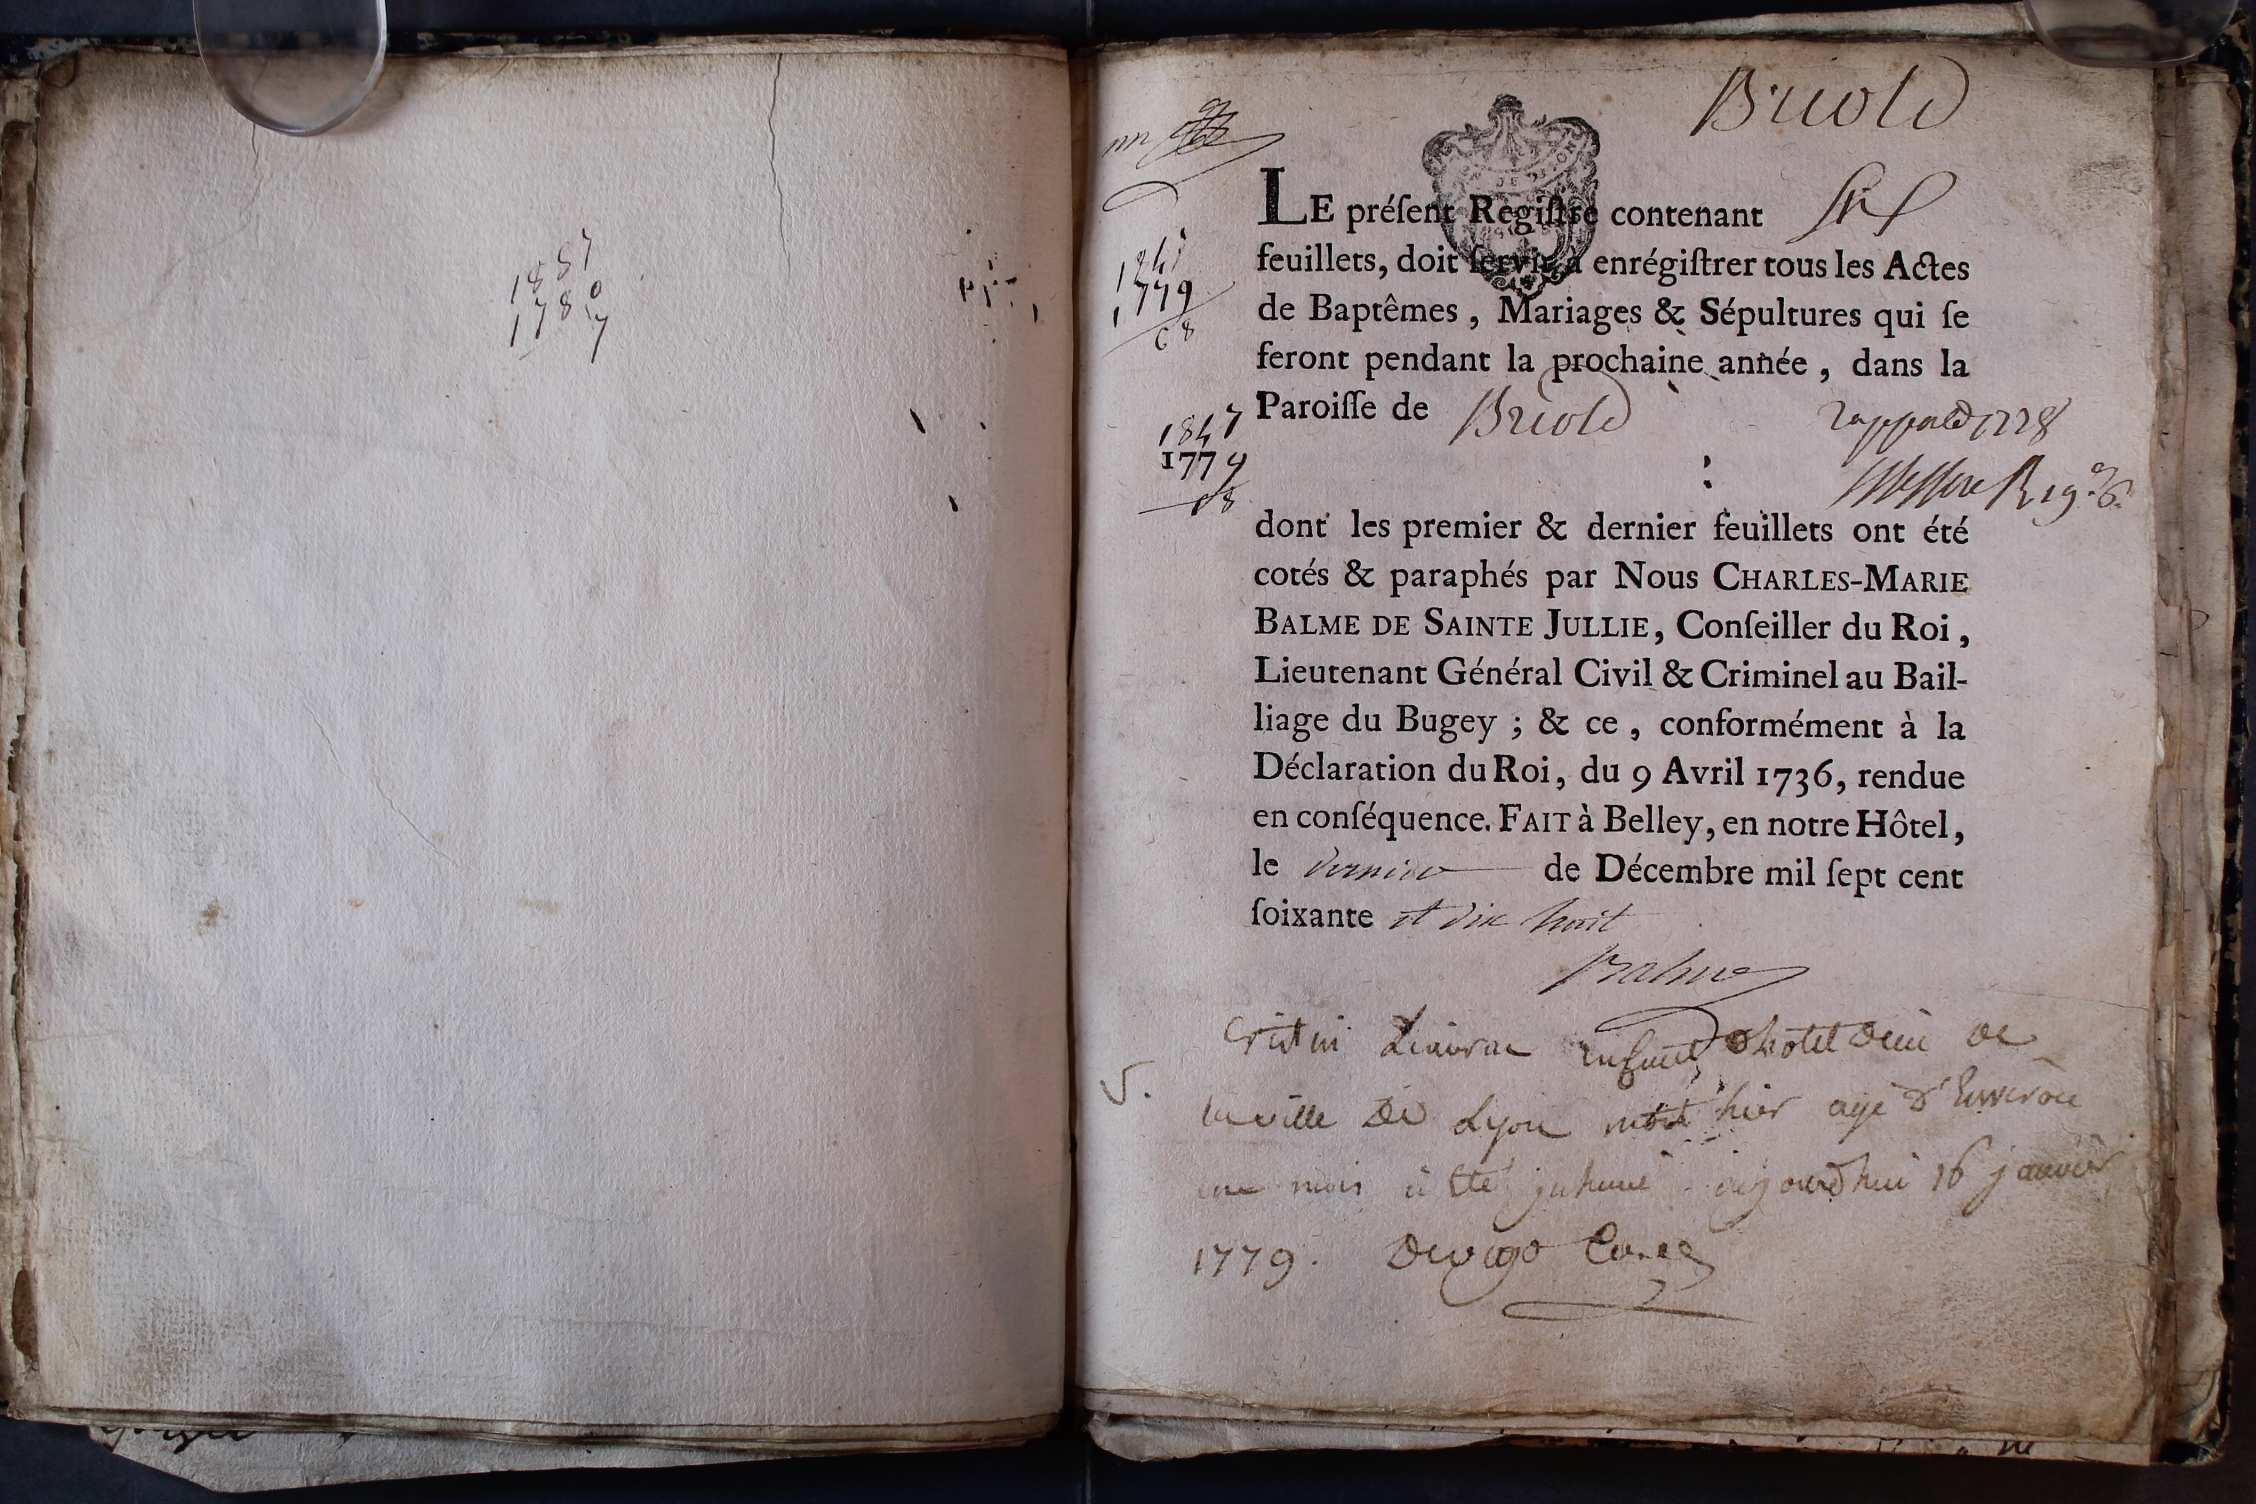 1887
1780
7
Briold
1847
1779
68
LE préſent Regiſtre contenant six
feuillets, doit ſervir à enrégiſtrer tous les Actes
de Baptêmes, Mariages & Sépultures qui ſe
feront pendant la prochaine année, dans la
Paroiſſe de Briold
1847
1779
68
dont les premier & dernier feuillets ont été
cotés & paraphés par Nous CHARLES-MARIE
BALME DE SAINTE JULLIE, Conſeiller du Roi,
Lieutenant Général Civil & Criminel au Bail-
liage du Bugey ; & ce, conformément à la
Déclaration du Roi, du 9 Avril 1736, rendue
en conſéquence. FAIT à Belley, en notre Hôtel,
le dernier de Décembre mil ſept cent
ſoixante et dix huit
Balme
enfant d'hotel deiu de
la ville de Lyon mort hier agé d'environ
un mois a été juhumé aujourdhui 16 janvier
1779.